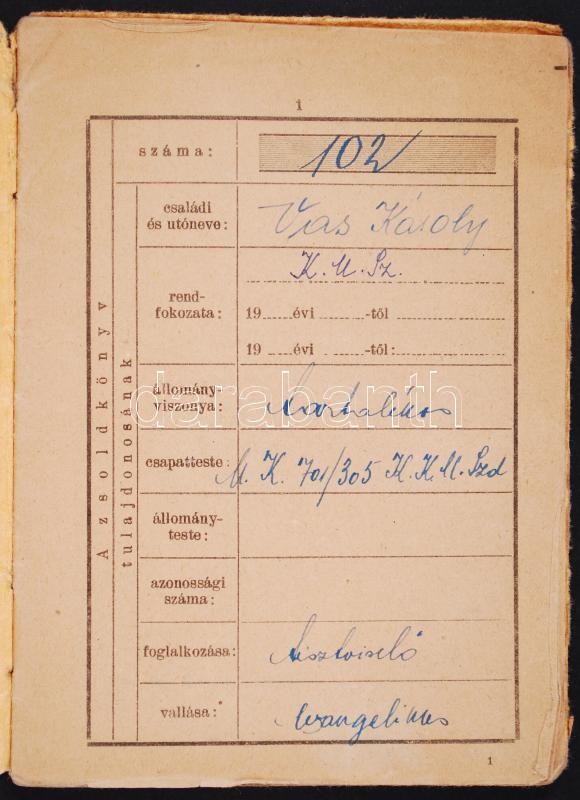 1
A zsoldkönyv
tulajdonosának
száma: 102
családi
és utóneve: Vas Károly
K. M. Sz.
rend-
fokozata: 19 évi -től
19 évi -től:
állomány-
viszonya:
csapatteste: M. K. 701/305 K. K. M. Szd
állomány-
teste:
azonossági
száma:
foglalkozása: tisztviselő
vallása: evangelikus
darabanth
1